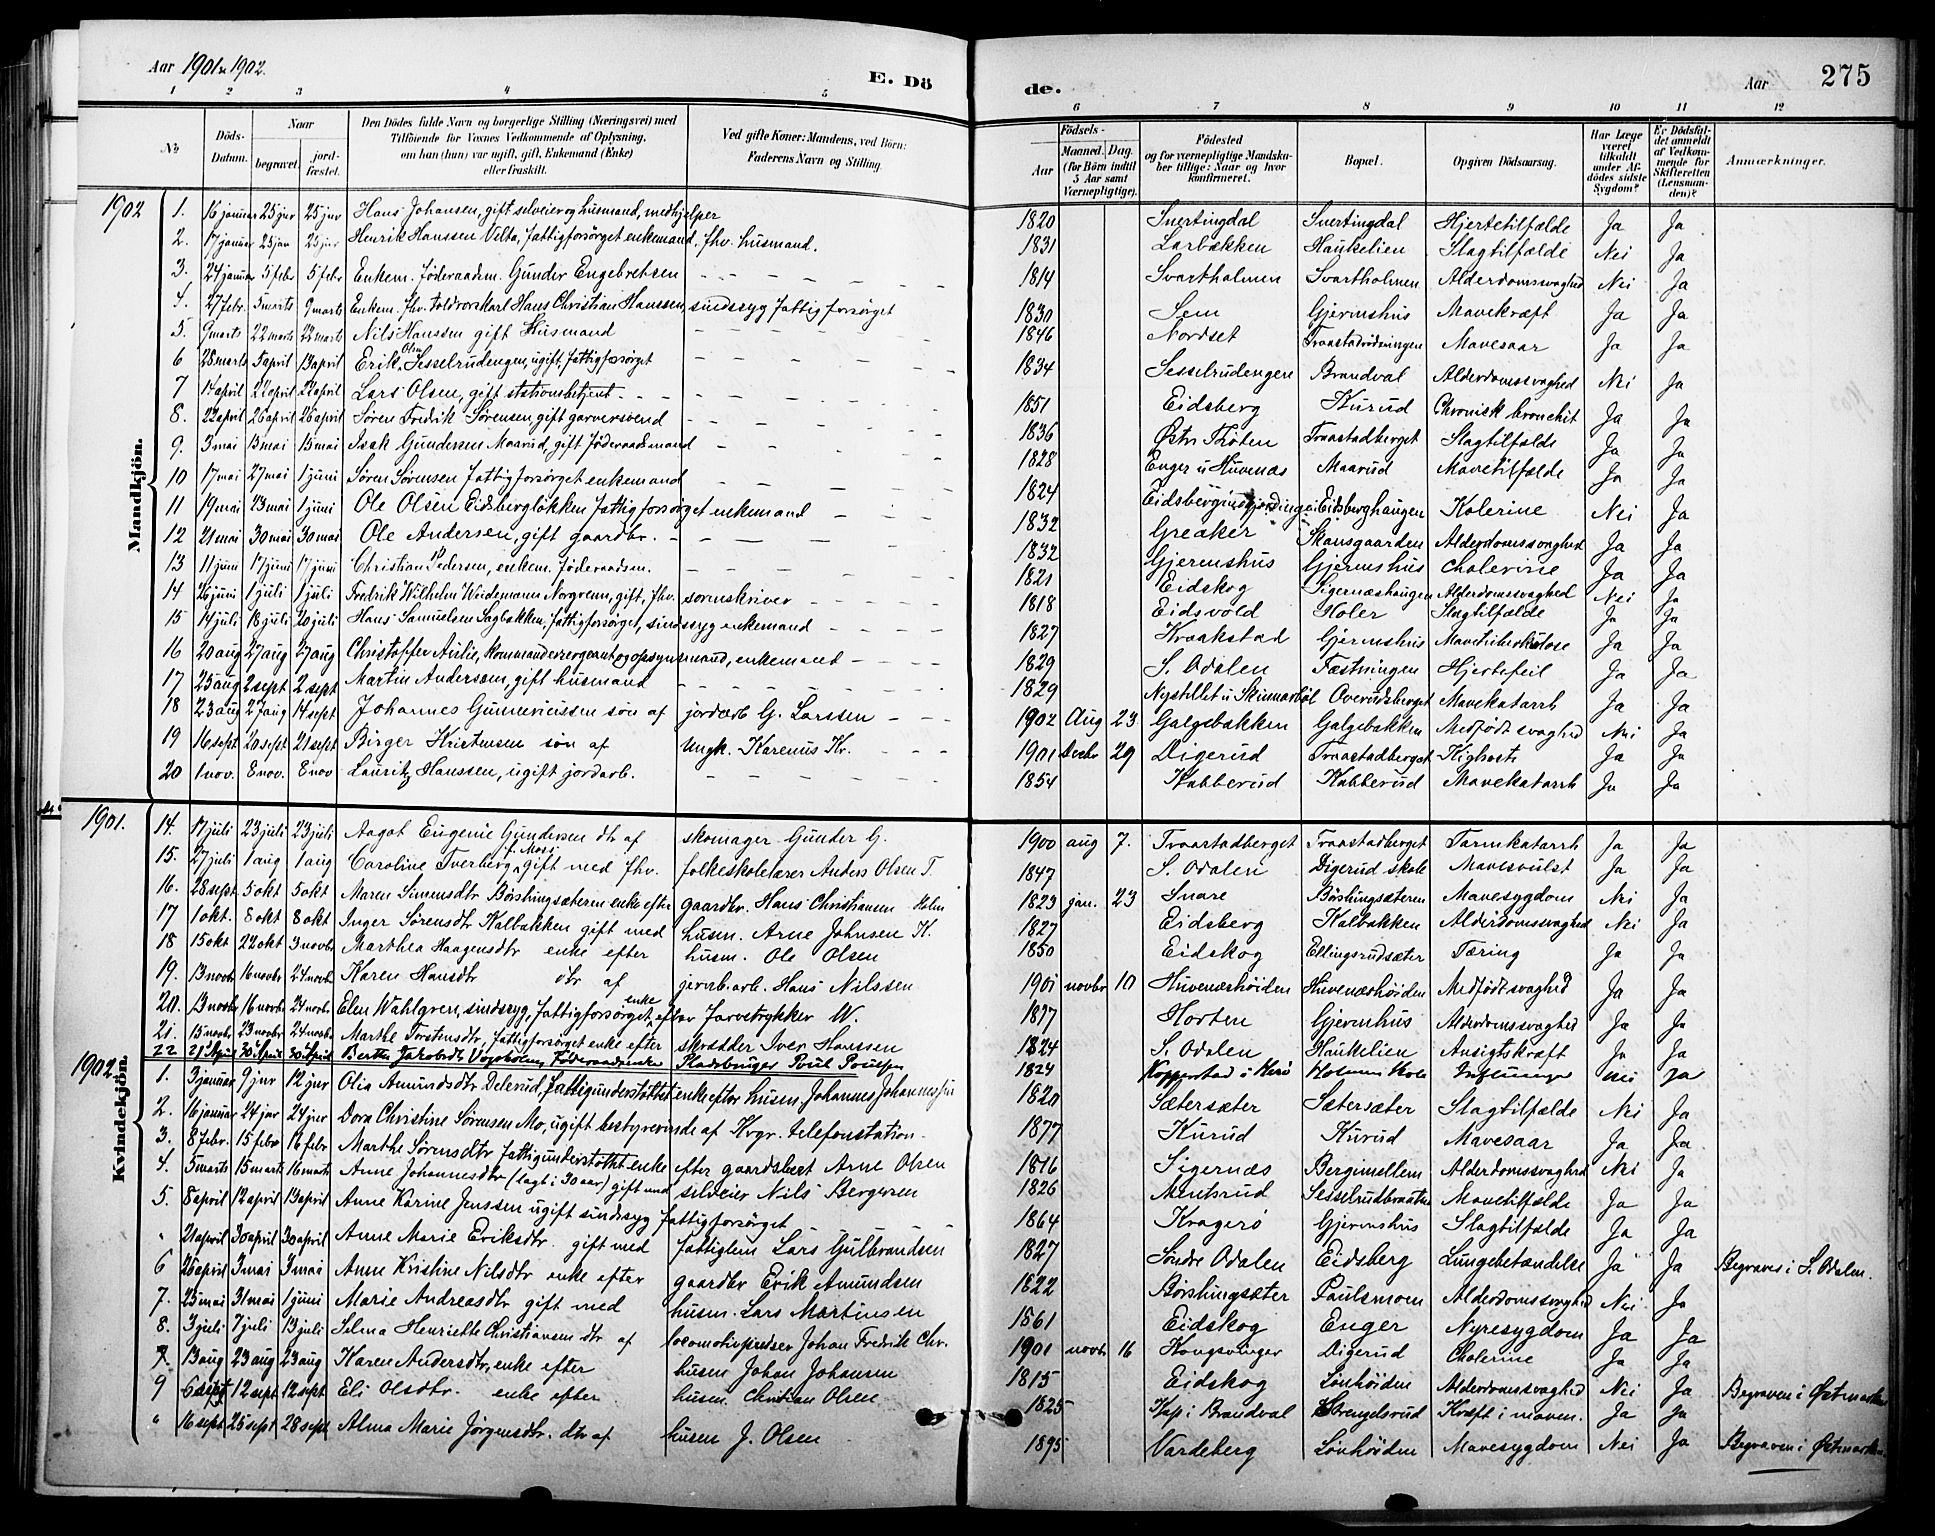 Aar 1901 & 1902.
E. Dö
de.
Aar
275
1 2 3 4 5 6 7 8 9 10 11 12
№
Döds-Datum.
Naar
begravet.
jord-fæstet.
Den Dödes fulde Navn og borgerlige Stilling (Næringsvei) med
Tilföiende for Voxnes Vedkommende af Oplysning,
om han (hun) var ugift, gift, Enkemand (Enke)
eller fraskilt.
Ved gifte Koner: Mandens, ved Börn:
Faderens Navn og Stilling.
Födsels-
Aar
Maaned. Dag.
(for Börn indtil
5 Aar samt
Værnepligtige).
Födested
og for værnepligtige Mandska-
ber tillige: Naar og hvor
konfirmeret.
Bopæl.
Opgiven Dödsaarsag.
Har Læge
været
tilkaldt
under Af-
dödes sidste
Sygdom?
Er Dödsfal-
det anmeldt
af Vedkom-
mende for
Skifteretten
(Lensman-
den)?
Anmærkninger.
Mandkjön.
1902
1. 16 januar 25 jnr 25 jnr Hans Johansen, gift selveier og husmand, medhjelper 1820 Snertingdal Snertingdal Hjertetilfælde Ja Ja
2. 17 januar 25 jnr 25 jnr Henrik Hanssen Velta, fattigforsörget enkemand, fhv. husmand. 1831 Larbækken Haukelien Slagtilfælde Nei Ja
3. 24 januar 5 febr 5 febr Enkem. föderaadsm. Gunder Engebretsen 1814 Svartholmen Svartholmen Alderdomssvaghed Nei Ja
4. 27 febr. 5 marts 9 marts Enkem. fhv. toldvorskarl Hans Christian Hanssen, sindssyg fattigforsörget 1830 Sem Gjermshus Mavekræft Ja Ja
5. 9 marts 22 marts 22 marts Nils Hanssen gift Husmand 1846 Nordset Traastadrödningen Mavesaar Ja Ja
6 28 marts 5 april 13 april Erik Olsen Sesselrudengen, ugift, fattigforsörget 1834 Sesselrudengen Brandval Alderdomssvaghed Nei Ja
7 14 april 22 april 22 april Lars Olsen, gift stationsbetjent 1851 Eidsberg Kurud Chronisk bronchit Ja Ja
8. 22 april 26 april 26 april Sören Fredrik Sörensen, gift garversvend 1836 Östre Thoten Traastadberget Slagtilfælde Ja Ja
9. 3 mai 13 mai 15 mai Isak Gundersen Maarud, gift föderaadsmand 1828 Enger u Huvenæs Maarud Mavetilfælde Ja Ja
10 17 mai 27 mai 1 juni Sören Sörensen fattigforsörget enkemand 1824 Eidsberg Eidsberghaugen Kolerine Nei Ja
11 19 mai 23 mai 1 juni Ole Olsen Eidsberglökken fattigforsörget enkemand 1832 Greaker Skansgaarden Alderdomssvaghed Ja Ja
12 21 mai 30 mai 30 mai Ole Andersen, gift gaardbr. 1832 Gjermshus Gjermshus Cholerine Ja Ja
13 11 juni 17 juni 17 juni Christian Pedersen, enkem. föderaadsm. 1821 Eidskog Sigernæshaugen Alderdomssvaghed Nei Ja
14 26 juni 1 juli 1 juli Fredrik Wilhelm Wiedemann Norgrenn, gift, fhv. sorenskriver 1818 Eidsvold Holer Slagtilfælde Ja Ja
15 14 juli 18 juli 20 juli Hans Samuelsen Sagbakken, fattigforsörget, sindssyg enkemand 1827 Kraakstad Gjermshus Mavetuberkulose Ja Ja
16 20 aug 27 aug 27 aug Christoffer Aulie, kommandersergeant og opsynsmand, enkemand 1829 S. Odalen Fæstningen Hjertefeil Ja Ja
17 25 aug 2 sept 2 sept Martin Anderssen, gift husmand 1829 Nystillet u Skinnarböl Overudsberget Mavekatarrh Ja Ja
18 23 aug 27 aug 14 sept Johannes Gunneriussen sön af jordarb G. Larssen 1902 Aug 23 Galgebakken Galgebakken Medfödt svaghed Nei Ja
19 16 sept 20 sept 21 sept Birger Kristensen sön af Ungk. Karenus Kr. 1901 Decbr 29 Digerud Traastadberget Kighoste Ja Ja
20 1 nov. 8 nov. 8 nov Lauritz Hanssen, ugift jordarb. 1854 Kabberud Kabberud Mavekatarrh Ja Ja
1901.
Kvindekjön.
14. 17 juli 23 juli 23 juli Aagot Eugenie Gundersen dtr af skomager Gunder G. 1900 aug 7. Traastadberget Traastadberget Tarmkatarrh Ja Ja
15. 27 juli 1 aug 1 aug Caroline Tverberg f. Mosi gift med fhv. folkeskolelærer Anders Olsen T. 1847 S. Odalen Digerud skole Mavesvulst Ja Ja
16. 28 sept 5 okt 5 okt Maren Simensdtr Börshingsæteren enke efter gaardbr. Hans Christiansen 1823 jan. 23 Snare Börshingsæteren Mavesygdom Nei Ja
17 1 okt. 8 okt 8 okt Inger Sörensdtr Kalbakken gift med husm. Arne Johnsen K. 1827 Eidsberg Kalbakken Alderdomssvaghed Nei Ja
18 15 okt 22 okt 3 novbr Marthea Haagensdtr enke efter husm. Ole Olsen 1850 Eidskog Ellingsrudsæter Tæring Ja Ja
19. 13 novbr 16 novbr 24 novbr Karen Hansdtr dtr af jernb. arb. Hans Nilssen 1901 novbr 10 Huvenæshöiden Huvenæshöiden Medfödt svaghed Ja Ja
20. 13 novbr 16 novbr 24 novbr Elen Wahlgren, sindssyg, fattigforsörget, enke efter farvetrykker W. 1817 Horten Gjermhus Alderdomssvaghed Ja Ja
21. 15 novbr 23 novbr 24 novbr Marthe Torstensdtr, fattigforsörget enke efter skrædder Iver Hanssen 1824 S. Odalen Haukelien Ansigtskræft Ja Ja
22 21 April 30 April 30 April Berthe Jakobsdtr föderaadsenke Pladsbruger Poul Poulsen 1824 Kopperstad i Holmen Influenza nei Ja
1902.
1. 3 januar 9 jnr 12 jnr Olia Amundsdtr Delerud, fattigunderstöttet enke efter husm. Johannes Johannessen 1820 Sætersæter Sætersæter Slagtilfælde Nei Ja
2. 16 januar 24 jnr 24 jnr Dora Christine Sörensen Mo, ugift bestyrerinde af Kvgr. telefonstation. 1877 Kurud Kurud Mavesaar Ja Ja
3. 8 febr. 15 febr 16 febr Marthe Sörensdtr fattigunderstöttet enke efter gaardsbest Arne Olsen 1816 Sigernæs Bergimellem Alderdomssvaghed Nei Ja
4. 5 marts 15 marts 16 marts Anne Johannesdtr (lagt i 30 aar) gift med selveier Nils Bergersen 1826 Mentsrud Sesselrudbraaten Mavetilfælde Ja Ja
5. 8 april 12 april 13 april Anne Karine Jenssen ugift sindssyg fattigforsörget 1864 Kragerö Gjermshus Slagtilfælde Ja Ja
" 21 april 30 april 30 april Anne Marie Eriksdtr. gift med fattiglem Lars Gulbrandsen 1827 Söndre Odalen Eidsberg Lungebetændelse Ja Ja Begraves i S. Odalen.
6 26 april 3 mai 3 mai Anne Kristine Nilsdtr enke efter gaardbr Erik Amundsen 1822 Börshingsæter Paulsmoen Alderdomssvaghed Nei Ja
7. 25 mai 31 mai 1 juni Marie Andreasdtr gift med husm. Lars Martinsen 1861 Eidskog Enger Nyresygdom Ja Ja
8. 3 juli 7 juli 13 juli Selma Henriette Christiansen dtr af locomotivpudser Johan Fredrik Chr. 1901 novbr 16 Kongsvinger Digerud Cholerine Ja Ja
13 aug 23 aug 23 aug Karen Andersdtr, enke efter husm Johan Johansen 1815 Eidskog Lönhöiden Alderdomssvaghed Nei Ja Begraven i Östmarken
9 6 sept 12 sept 12 sept Eli Olsdtr. enke efter husm. Christian Olsen 1825 Kap i Brandval Strengelsrud Kræft i maven. Ja Ja
" 16 sept 25 sept 28 sept Alma Marie Jörgensdtr. dtr af husm J. Olsen 1895 Vardeberg Lönhöiden Mavesygdom Nei Ja Begraven i Östmarken